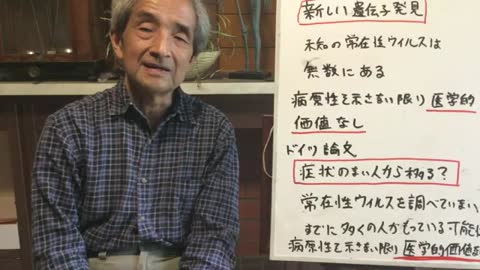 新しい遺伝子発見
未知の常在性ウイルスは
無数にある
病原性を示さない限り医学的
価値なし
ドイツ論文
症状のない人から移る?
常在性ウイルスを調べていない
すでに多くの人がもっている可能
病原性を示さない限り医学的価値